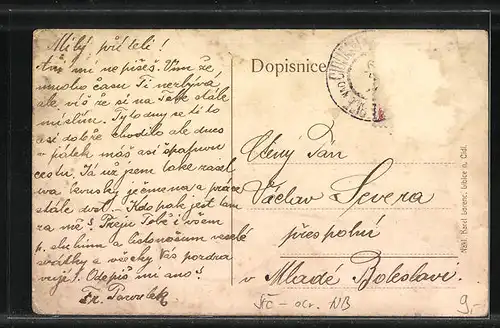 Milý příteli!
Ani mi nepíšeš. Vím že,
mnoho času Ti nezbývá,
ale víš že si na Tebe stále
myslím. Ty dny se ti to
asi dobře chodilo ale dnes
- pátek máš asi špatnou
cestu. Já už jsem také
kousky ječmena a práce
stále dost. - Kdo pak jest tam
za mě? Přeju Tobě i všem
p. a listonošům veselé
svátky a všecky Vás pozdra
vuji! Odepiš mi ano!
Fr.
Dopisnice
Ctěný Pán
Václav Severa
přespolní
v Mladé Boleslavi
Karel Lorenc, Libice n. Cidl.
NB
9,-